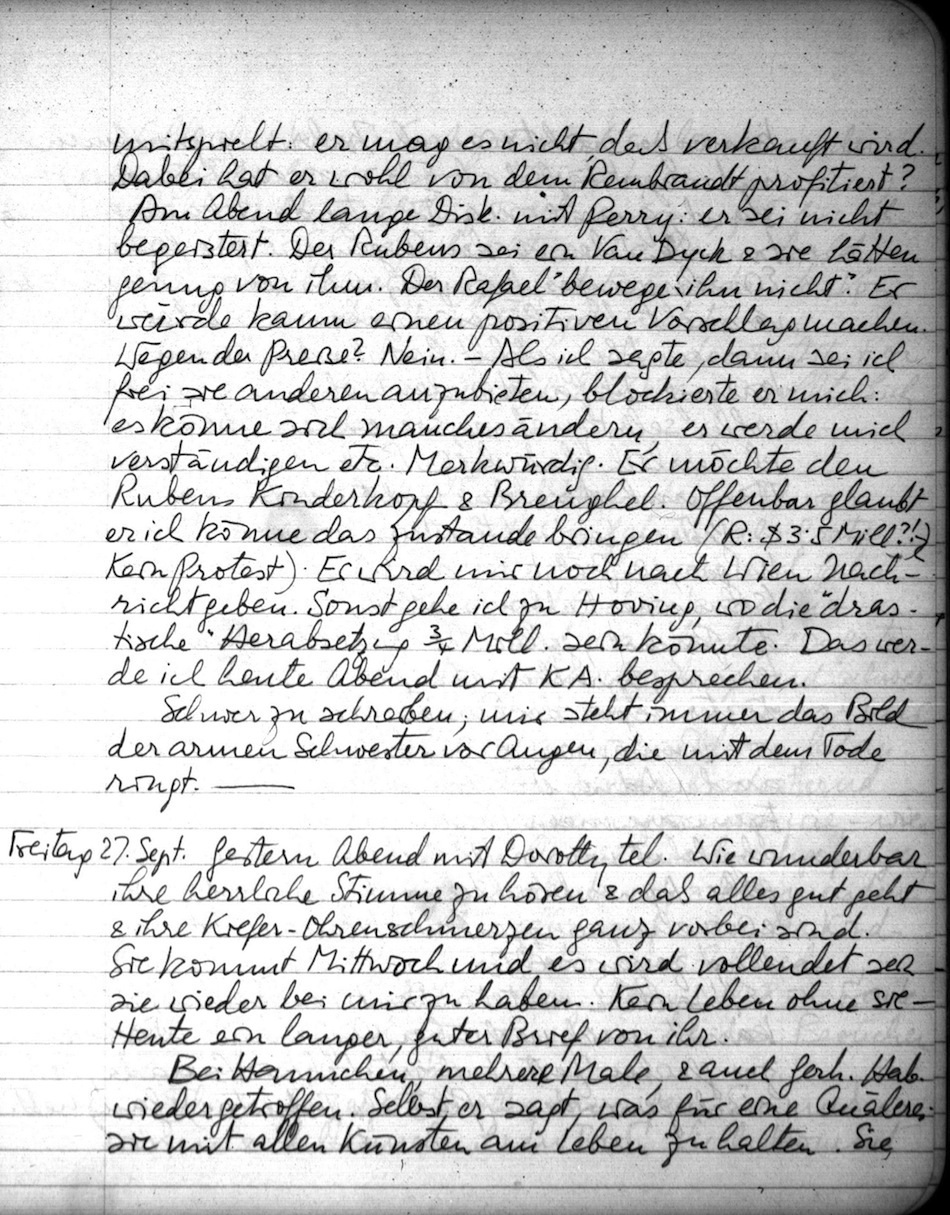 mitspielt: er mag es nicht, daß verkauft wird.
Dabei hat er wohl von dem Rembrandt profitiert?
Am Abend lange Disk. mit Perry: er sei nicht
begeistert. Der Rubens sei ein Van Dyck & sie hätten
genug von ihm. Der Rafael "bewege ihn nicht". Er
würde kaum einen positiven Vorschlag machen.
Wegen der Preise? Nein. – Als ich sagte, dann sei ich
frei sie anderen anzubieten, blockierte er mich:
es könne sich manches ändern, er werde mich
verständigen etc. Merkwürdig. Er möchte den
Rubens Kinderkopf & Breughel. Offenbar glaubt
er ich könne das zustande bringen (R: $ 3·5 Mill?!
Kein Protest). Er wird mir noch nach Wien Nach-
richt geben. Sonst gehe ich zu Hoving, wo die "dras-
tische" Herabsetzung ¾ Mill. sein könnte. Das wer-
de ich heute Abend mit KA. besprechen.
Schwer zu schreiben; mir steht immer das Bild
der armen Schwester vor Augen, die mit dem Tode
ringt. ——
Freitag 27. Sept. Gestern Abend mit Dorothy tel. Wie wunderbar
ihre herrliche Stimme zu hören & daß alles gut geht
& ihre Kiefer-Ohrenschmerzen ganz vorbei sind.
Sie kommt Mittwoch und es wird vollendet sein
sie wieder bei mir zu haben. Kein Leben ohne sie –
Heute ein langer, guter Brief von ihr.
Bei Hannichen, mehrere Male, & auch Gerh. Hab.
wiedergetroffen. Selbst er sagt, was für eine Quälerei
sie mit allen Künsten am Leben zu halten. Sie